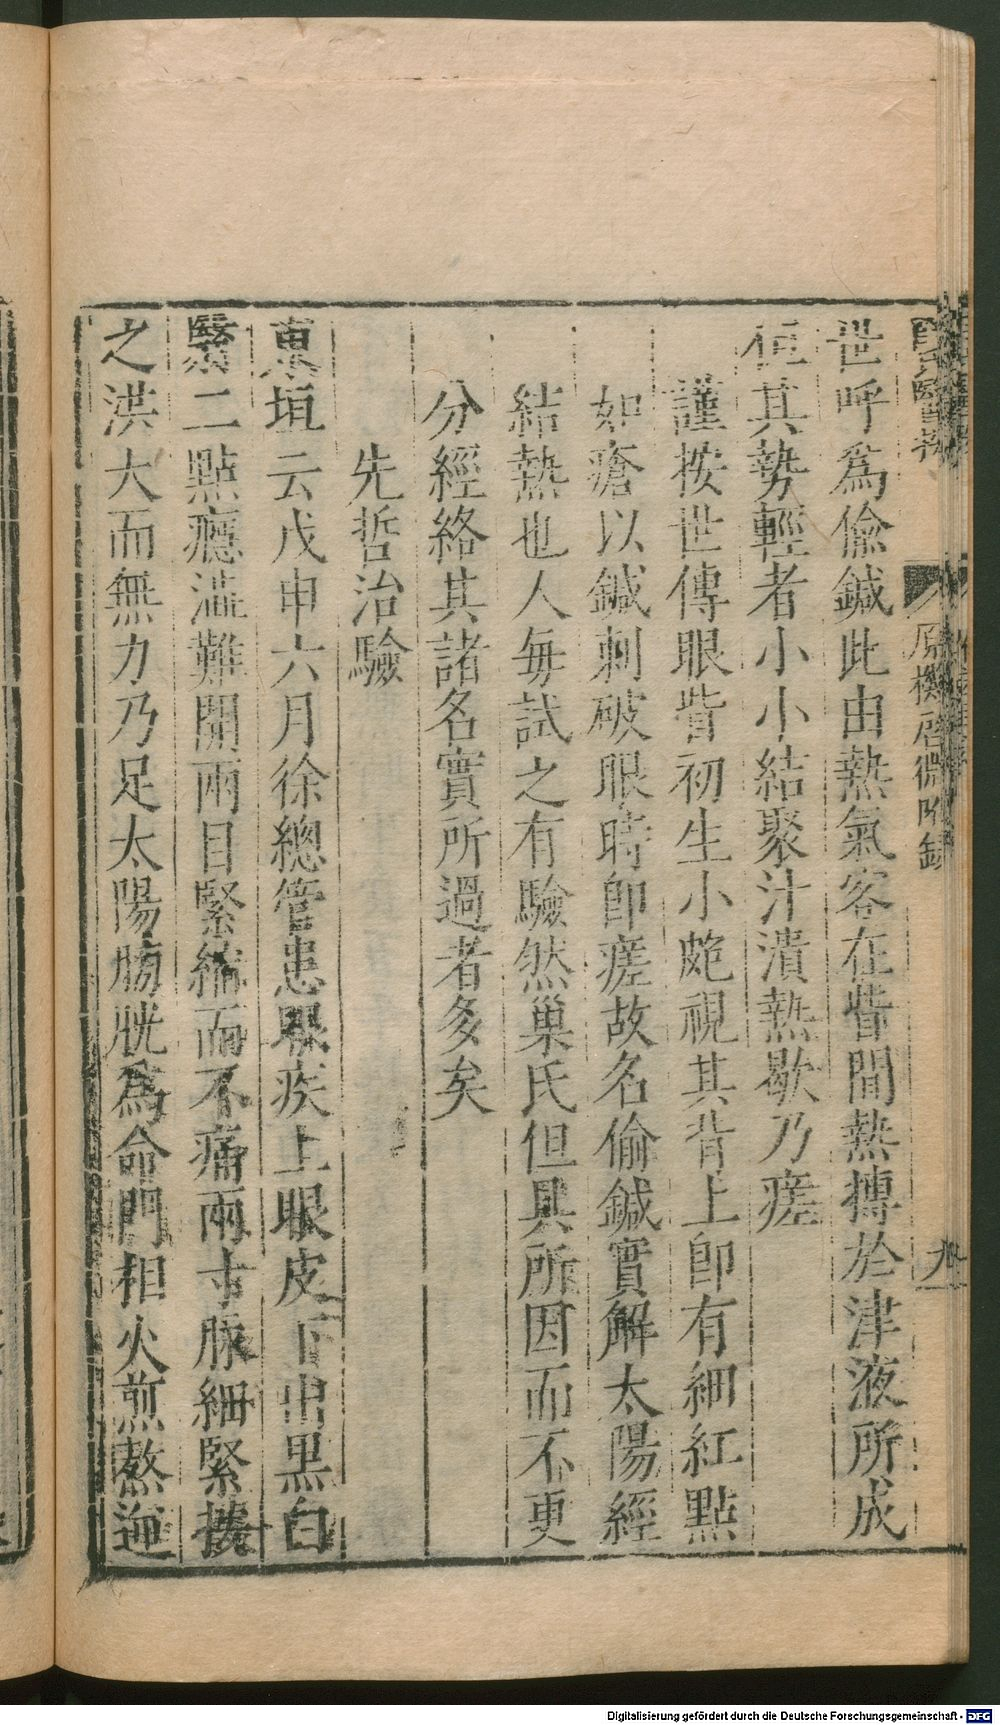 世呼爲偸鍼此由熱氣客在眥間熱摶於津液所成
但其勢輕者小小結聚汁潰熱歇乃瘥
謹按世傳眼眥初生小皰視其背上卽有細紅點
如瘡以鍼刺破眼時卽瘥故名偷鍼實解太陽經
結熱也人每試之有驗然巢氏但具所因而不更
分經絡其諸名實所過者多矣
先哲治驗
東垣云戊申六月徐總管患眼疾上眼皮下出黑白
翳二點癮澁難開兩目緊縮而不痛兩寸脉細緊按
之洪大而無力乃足太陽膀胱爲命門相火煎熬逆
原機啓微附錄
九
Digitalisierung gefördert durch die Deutsche Forschungsgemeinschaft - DFG